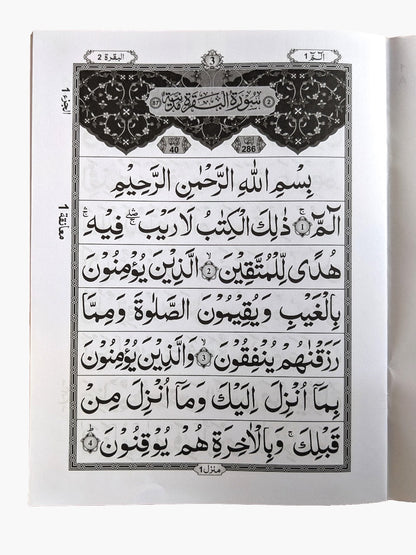 الٓمّٓ ١
٣
البقرة ٢
الجزء ١
معانقة ١
سُوْرَةُ الْبَقَرَةِ مَدَنِيَّةٌ
286
40
بِسْمِ اللّٰهِ الرَّحْمٰنِ الرَّحِيْمِ
الٓمّٓ ۚ‏﴿۱﴾ ذٰلِكَ الْكِتٰبُ لَا رَيْبَ ۛۖۚ فِيْهِ ۛۚ
هُدًى لِّلْمُتَّقِيْنَ ۙ﴿۲﴾ الَّذِيْنَ يُؤْمِنُوْنَ
بِالْغَيْبِ وَ يُقِيْمُوْنَ الصَّلٰوةَ وَ مِمَّا
رَزَقْنٰهُمْ يُنْفِقُوْنَ ۙ﴿۳﴾ وَالَّذِيْنَ يُؤْمِنُوْنَ
بِمَاۤ اُنْزِلَ اِلَيْكَ وَ مَاۤ اُنْزِلَ مِنْ
قَبْلِكَ ۚ وَ بِالْاٰخِرَةِ هُمْ يُوْقِنُوْنَ ؕ﴿۴﴾
منزل ١